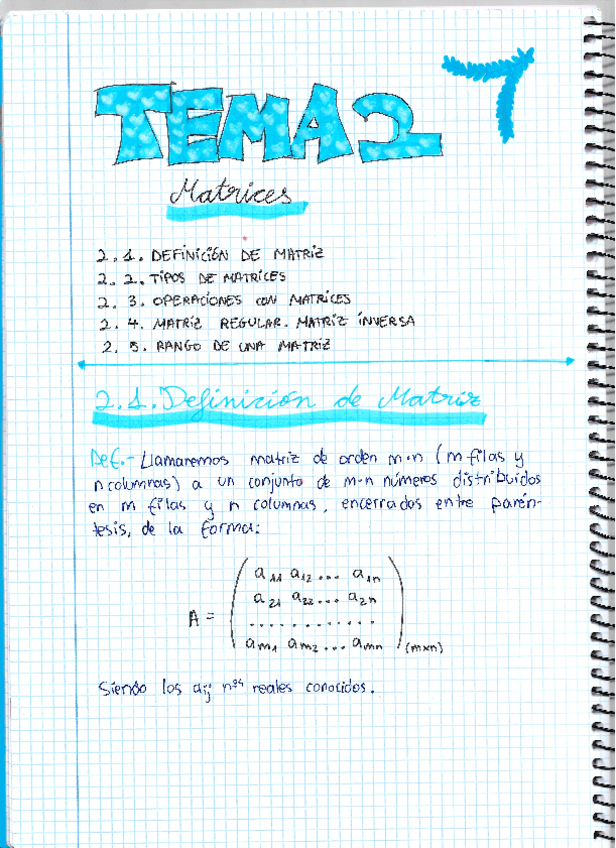 TEMA 2
7
Matrices
2.1. DEFINICIÓN DE MATRIZ
2.2. TIPOS DE MATRICES
2.3. OPERACIONES CON MATRICES
2.4. MATRIZ REGULAR. MATRIZ INVERSA
2.5. RANGO DE UNA MATRIZ
2.1. Definición de Matriz
Def.- Llamaremos matriz de orden m·n (m filas y
n columnas) a un conjunto de m·n números distribuidos
en m filas y n columnas, encerrados entre parén-
tesis, de la forma:
a₁₁ a₁₂ ... a₁ₙ
a₂₁ a₂₂ ... a₂ₙ
A = ............
aₘ₁ aₘ₂ ... aₘₙ (m×n)
Siendo los aᵢⱼ nºs reales conocidos.